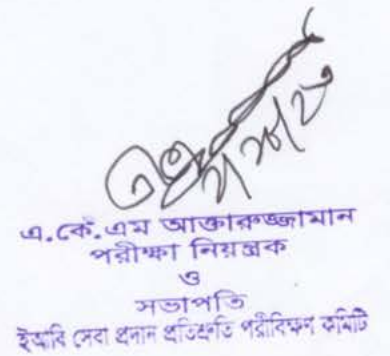 এ.কে.এম আক্তারুজ্জামান
পরীক্ষা নিয়ন্ত্রক
ও
সভাপতি
ইআবি সেবা প্রদান প্রতিশ্রুতি পরীবিক্ষণ কমিটি